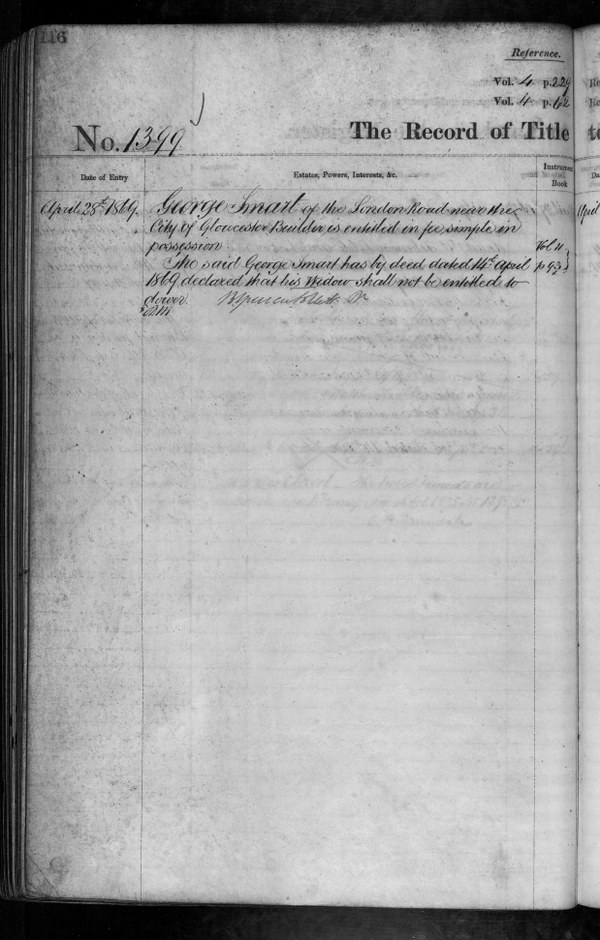 116
Reference.
Vol. 4 p. 229
Vol. 4 p. 62
No. 1399
The Record of Title
Date of Entry
Estates, Powers, Interests, &c.
Book
April 28th 1869.
George Smart of the London Road near the
City of Gloucester Builder is entitled in fee simple in
possession
Vol 11
The said George Smart has by deed dated 14th April
1869 declared that his Widow shall not be entitled to
dower
April